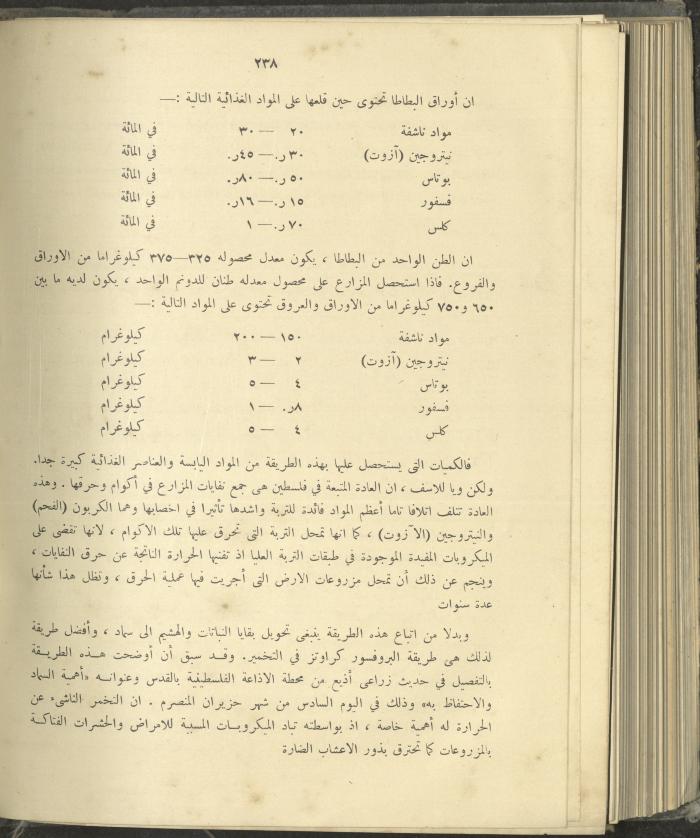 ٢٣٨
ان أوراق البطاطا تحتوى حين قلعها على المواد الغذائية التالية :—
مواد ناشفة ٢٠ — ٣٠ في المائة
نيتروجين (آزوت) ٣٠ر. — ٤٥ر. في المائة
بوتاس ٥٠ر. — ٨٠ر. في المائة
فسفور ١٥ر. — ١٦ر. في المائة
كلس ٧٠ر. — ١ في المائة
ان الطن الواحد من البطاطا ، يكون معدل محصوله ٣٢٥—٣٧٥ كيلوغراما من الاوراق
والفروع. فاذا استحصل المزارع على محصول معدله طنان للدونم الواحد ، يكون لديه ما بين
٦٥٠ و٧٥٠ كيلوغراما من الاوراق والعروق تحتوى على المواد التالية :—
مواد ناشفة ١٥٠ — ٢٠٠ كيلوغرام
نيتروجين (آزوت) ٢ — ٣ كيلوغرام
بوتاس ٤ — ٥ كيلوغرام
فسفور ٨ر. — ١ كيلوغرام
كلس ٤ — ٥ كيلوغرام
فالكميات التى يستحصل عليها بهذه الطريقة من المواد اليابسة والعناصر الغذائية كبيرة جدا.
ولكن ويا للاسف ، ان العادة المتبعة في فلسطين هى جمع نفايات المزارع في أكوام وحرقها . وهذه
العادة تتلف اتلافا تاما أعظم المواد فائدة للتربة واشدها تأثيرا في اخصابها وهما الكربون (الفحم)
والنيتروجين (الآزوت) ، كما انها تمحل التربة التى تحرق عليها تلك الاكوام ، لانها تقضى على
الميكروبات المفيدة الموجودة في طبقات التربة العليا اذ تفنيها الحرارة الناتجة عن حرق النفايات ،
وينجم عن ذلك أن تمحل مزروعات الارض التى أجريت فيها عملية الحرق ، وتظل هذا شأنها
عدة سنوات
وبدلا من اتباع هذه الطريقة ينبغى تحويل بقايا النباتات والهشيم الى سماد ، وأفضل طريقة
لذلك هى طريقة البروفسور كراوتز في التخمير. وقد سبق أن أوضحت هذه الطريقة
بالتفصيل في حديث زراعى أذيع من محطة الاذاعة الفلسطينية بالقدس وعنوانه «أهمية السماد
والاحتفاظ به» وذلك في اليوم السادس من شهر حزيران المنصرم . ان التخمر الناشىء عن
الحرارة له أهمية خاصة ، اذ بواسطته تباد الميكروبات المسببة للامراض والحشرات الفتاكة
بالمزروعات كما تحترق بذور الاعشاب الضارة